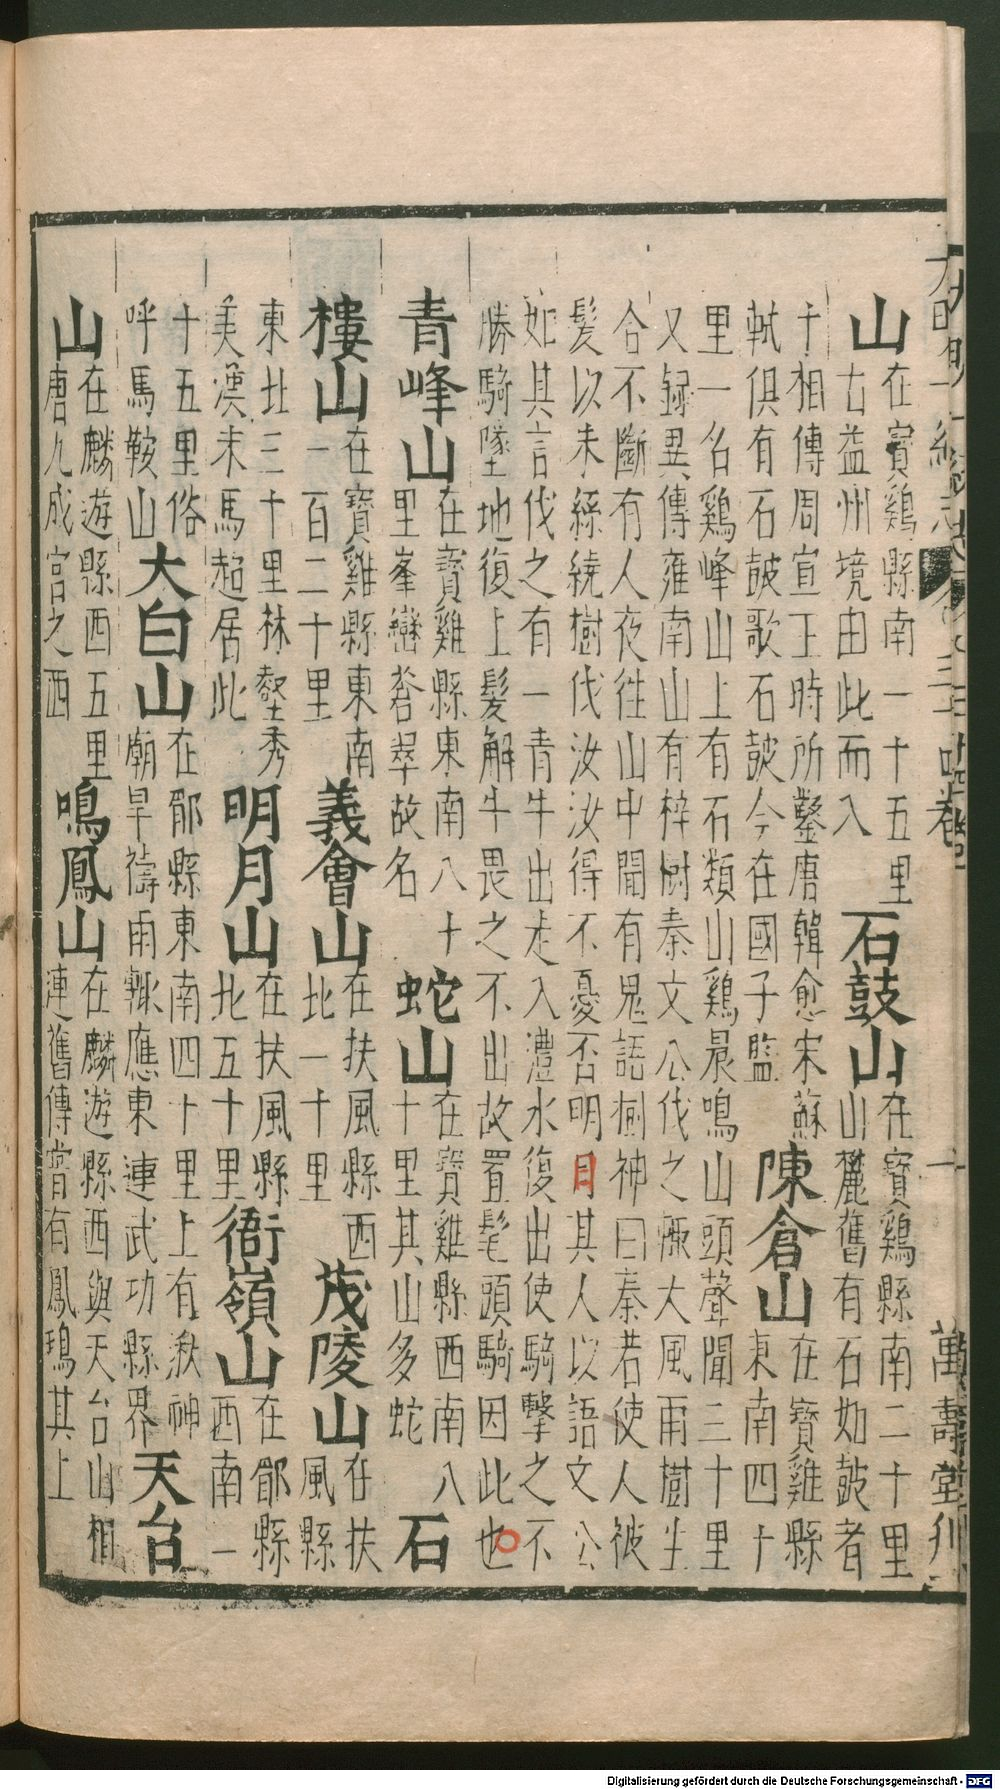 大明一統志 卷之三十四 萬壽堂刊
山在寶鷄縣南一十五里古益州境由此而入石鼓山在寶鷄縣南二十里山麓舊有石如鼓者
十相傳周宣王時所鑿唐韓愈宋蘇軾俱有石鼓歌石鼓今在國子監陳倉山在寶雞縣東南四十
里一名鷄峰山上有石類山鷄晨鳴山頭聲聞三十里
又録異傳雍南山有梓樹秦文公伐之輙大風雨樹生
合不斷有人夜徃山中聞有鬼語樹神曰秦若使人被
髪以朱絲繞樹伐汝汝得不憂否明日其人以語文公
如其言伐之有一青牛出走入澧水復出使騎擊之不
勝騎墜地復上髪解牛畏之不出故置髦頭騎因此也
青峰山在寶雞縣東南八十里峯巒蒼翠故名蛇山在寶雞縣西南八十里其山多蛇石
樓山在寶雞縣東南一百二十里義會山在扶風縣西北一十里茂陵山在扶風縣
東北三十里林壑秀美漢末馬超居此明月山在扶風縣北五十里衙嶺山在郿縣西南一
十五里俗呼馬鞍山大白山在郿縣東南四十里上有湫神廟旱禱雨輙應東連武功縣界天台
山在麟遊縣西五里唐九成宮之西鳴鳳山在麟遊縣西與天台山相連舊傳嘗有鳳鳴其上
Digitalisierung gefördert durch die Deutsche Forschungsgemeinschaft - DFG